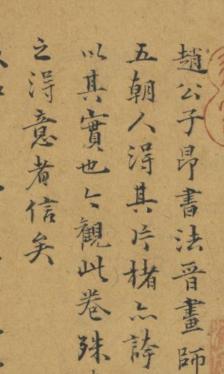 趙公子昂書法晉畫師
五朝人淂其片楮亦誇
以其實也今觀此卷殊
之淂意者信矣